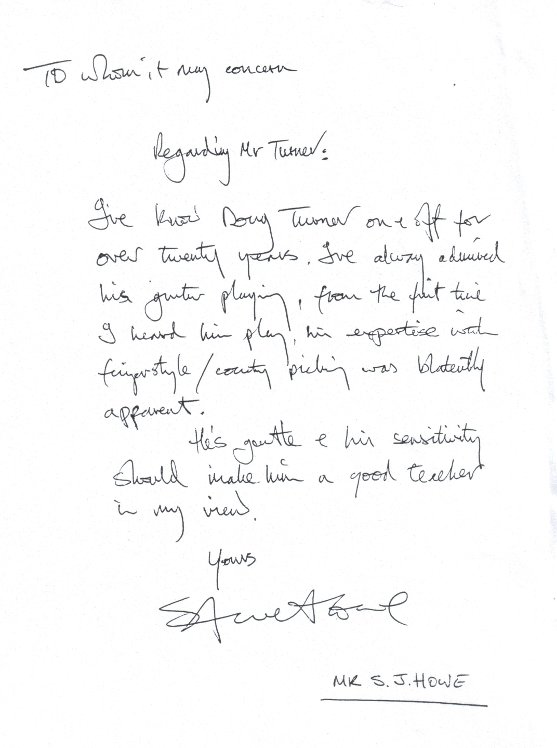 To whom it may concern
Regarding Mr Turner:
I've know Doug Turner on & off for
over twenty years. I've alway admired
his guitar playing, from the first time
I heard him play, his expertise with
fingerstyle/country picking was blatently
apparent.
He's gentle & his sensitivity
should make him a good teacher
in my view.
Yours
Steve Howe
MR S. J. HOWE